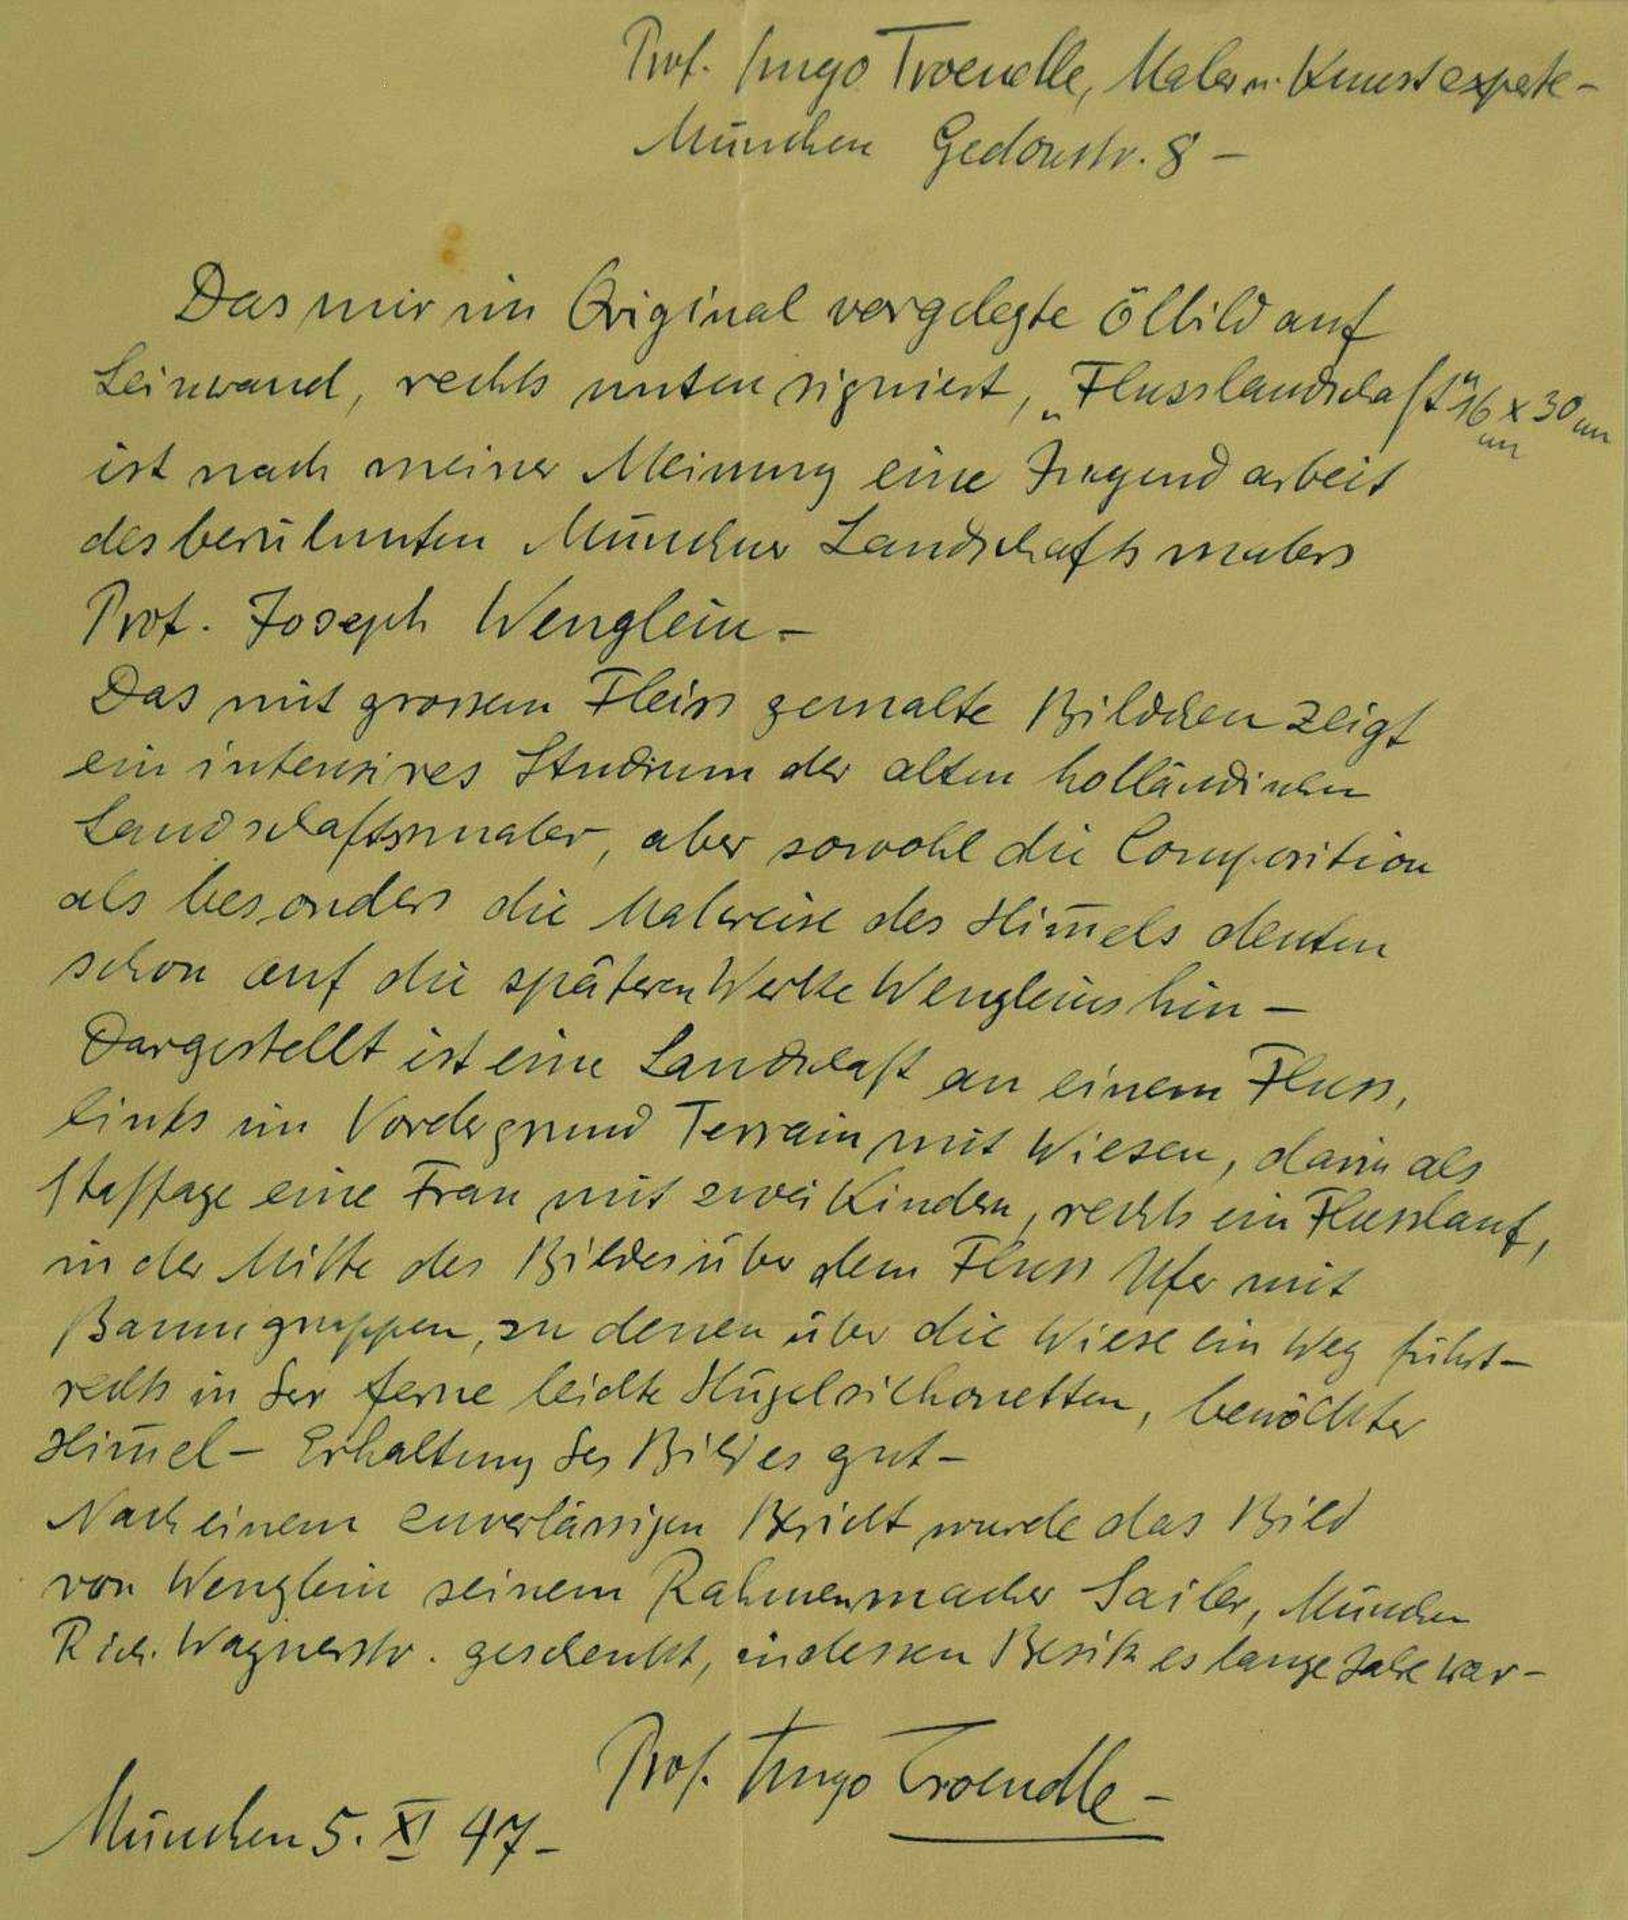 Prof. Hugo Troendle, Maler u. Kunstexperte -
München Gedonstr. 8 -
Das mir im Original vorgelegte Ölbild auf
Leinwand, rechts unten signiert, „Flusslandschaft" 16 x 30 cm
cm
ist nach meiner Meinung eine Jugendarbeit
des berühmten Münchner Landschaftsmalers
Prof. Joseph Wenglein -
Das mit grossem Fleiss gemalte Bildchen zeigt
ein intensives Studium der alten holländischen
Landschaftsmaler, aber sowohl die Composition
als besonders die Malweise des Him̅els deuten
schon auf die späteren Werke Wengleins hin -
Dargestellt ist eine Landschaft an einem Fluss,
links im Vordergrund Terrain mit Wiesen, darin als
Staffage eine Frau mit zwei Kindern, rechts ein Flusslauf,
in der Mitte des Bildes über dem Fluss Ufer mit
Baumgruppen, zu denen über die Wiese ein Weg führt -
rechts in der Ferne leichte Hügelsilhouetten, bewölkter
Him̅el - Erhaltung des Bildes gut -
Nach einem zuverlässigen Bericht wurde das Bild
von Wenglein seinem Rahmenmacher Sailer, München
Rich. Wagnerstr. geschenkt, in dessen Besitz es lange Jahre war -
Prof. Hugo Troendle -
München 5. XI 47 -